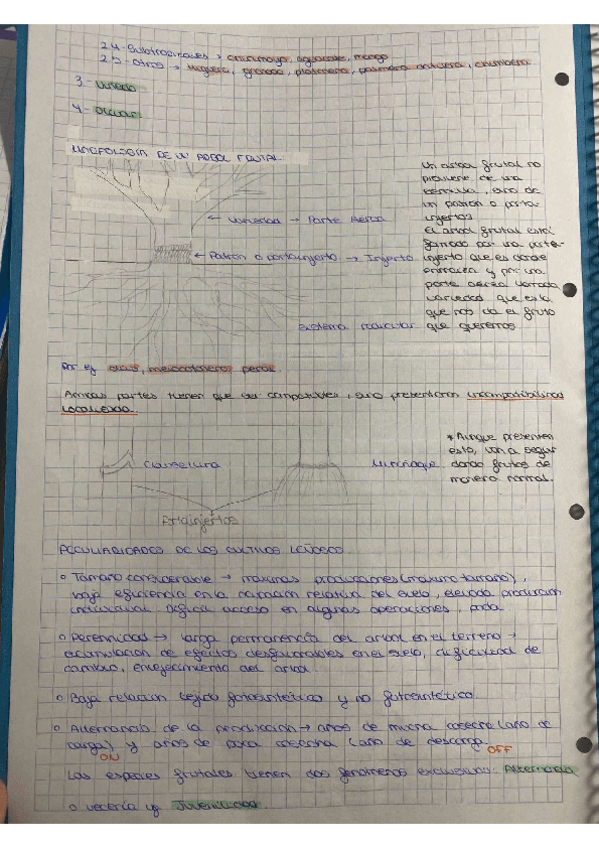 2.4.- Subtropicales → chirimoyo, aguacate, mango
2.5.- Otros → higuera, granado, platanera, palmera datilera, chumbera
3.- Viñedo
4.- Olivar
MORFOLOGÍA DE UN ÁRBOL FRUTAL.
Un árbol frutal no
proviene de una
semilla, sino de
un patrón o porta-
injertos
El árbol frutal está
formado por un porta-
injerto que es donde
enraíza y por una
parte aérea llamada
variedad que es la
que nos da el fruto
que queremos
← Variedad → Parte Aérea
← Patrón o portainjerto → Injerto
Sistema radicular
Por ej. olivo, melocotonero, peral.
Ambas partes tienen que ser compatibles, sino presentarán incompatibilidad
localizada.
* Aunque presenten
esto, van a seguir
dando frutos de
manera normal.
Miriñaque
Portainjertos
PECULIARIDADES DE LOS CULTIVOS LEÑOSOS.
○ Tamaño considerable → máximas producciones (máximo tamaño),
baja eficiencia en la ocupación relativa del suelo, elevada producción
individual, difícil acceso en algunas operaciones, poda.
○ Perennidad → larga permanencia del árbol en el terreno →
acumulación de efectos desfavorables en el suelo, dificultad de
cambio, envejecimiento del árbol.
○ Baja relación tejido fotosintético y no fotosintético.
○ Alternancia de la producción → años de mucha cosecha (año de
carga) y años de poca cosecha (año de descarga)
ON OFF
Las especies frutales tienen dos fenómenos exclusivos: Alternancia
o vecería y Juvenilidad